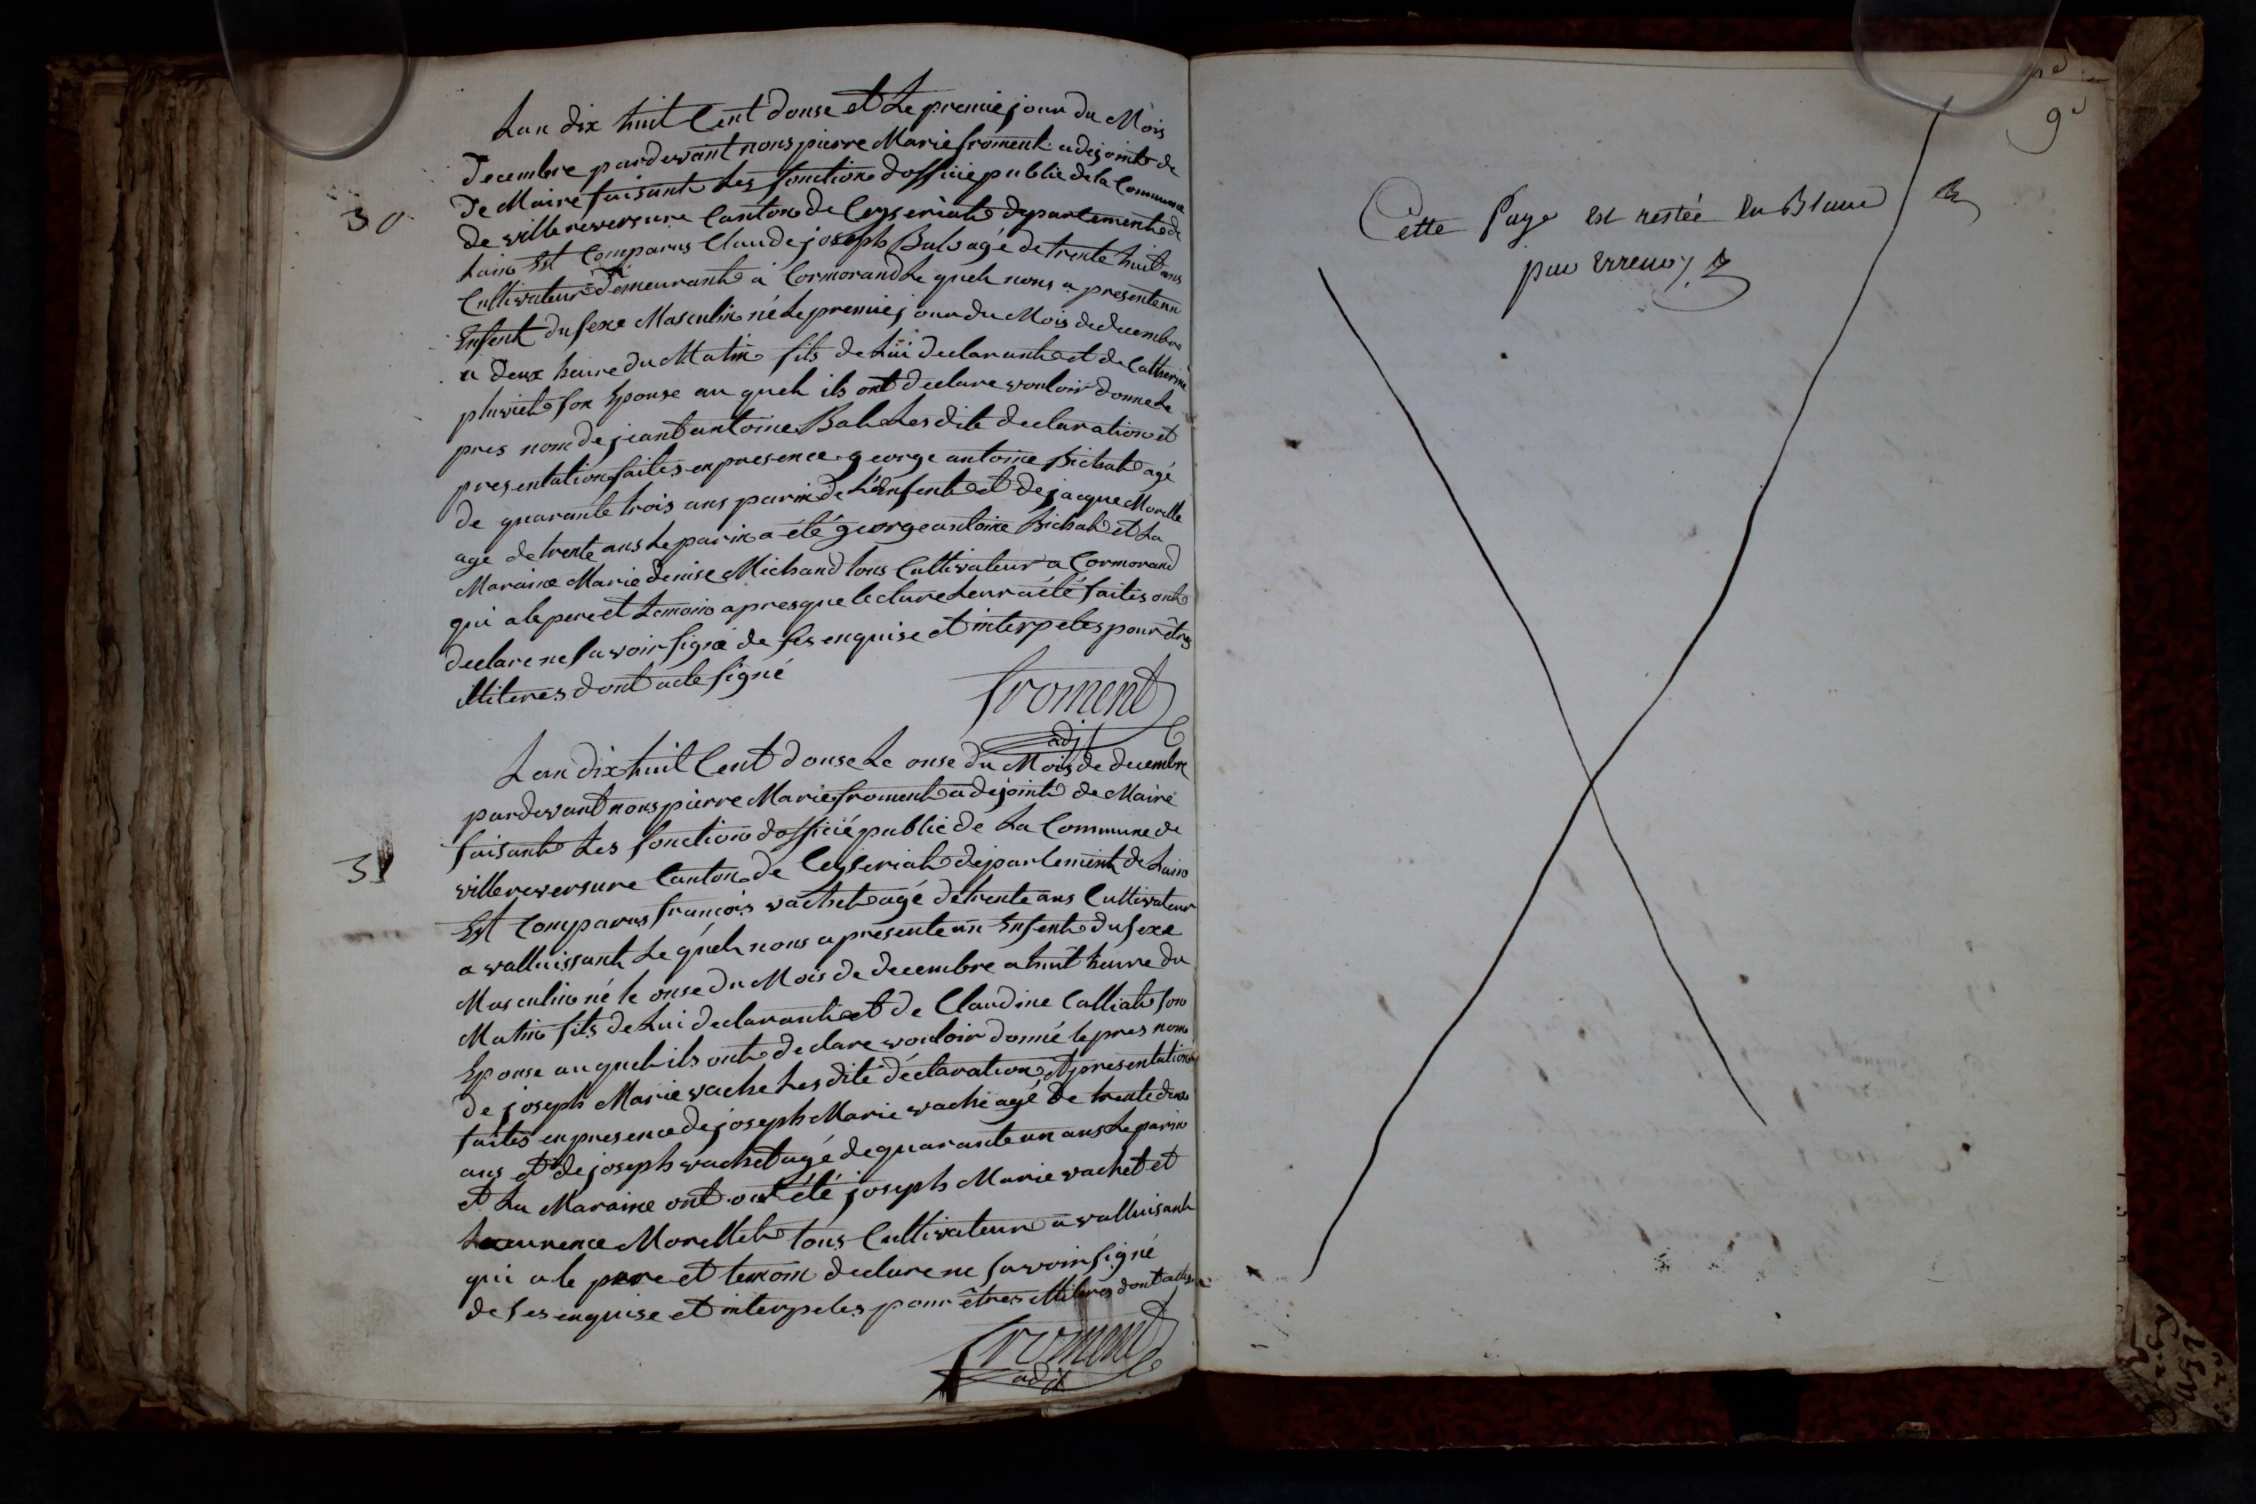 Lan dix huit Cent douse et Le premie jour du Mois
30
Decembre pardevant nous pierre Marie froment adejoint de
De Maire faisant Les fonction dofficie public de la Commune
de villereversure Canton de Ceyseriat departement de
Lain Est Comparus Claude joseph Bal agé de trente huit ans
Cultivateur demeurant a Cormorand Le quel nous a presente un
Enfent du sexe Masculin né Le premie jour du Mois de decembre
a deux heure du Matin fils de Lui declarant et de Catherine
son Epouse au quel ils ont declare vouloir donne Le
pres nom de jeant antoine Bal Les dite declaration et
presentation faites en presence george antoine Bichat agé
de quarante trois ans parin de L'Enfent et de jacque Morelle
age de trente ans Le parin a été george antoine Bichat et La
Maraine Marie denise Michaud tous Cultivateur a Cormorand
qui a le pere et temoin apres que lecture Leur a été faites ont
declare ne savoir signé de ses enquise et interpeles pour êtres
illiteres dont acte signé
froment
adjt
Lan dix huit Cent douse Le onse du Mois de decembre
31
pardevant nous pierre Marie froment adejoint de Maire
faisant Les fonction dofficié public de La Commune de
villereversure Canton de Ceyseriat departement de Lain
Est Comparus francois vachet agé de trente ans Cultivateur
a valluissant Le quel nous a presente un Enfent du sexe
Masculin né le onse du Mois de decembre a huit heure du
Matin fils de Lui declarant et de Claudine Calliat son
Epouse au quel ils ont declare vouloir donné le pres nom
de joseph Marie vache Les dite déclaration et presentation
faites en presence de joseph Marie vache agé de trente deux
ans et de joseph vachet agé de quarante un ans Le parin
et La Maraine ont ont été joseph Marie vachet et
Laurence Morellet tous Cultivateur a valluisant
qui a le pere et temoin declare ne savoir signé
de ses enquise et interpeles pour êtres illiteres dont acte
froment
adjt
9
Cette Page est restée en Blanc
par erreur